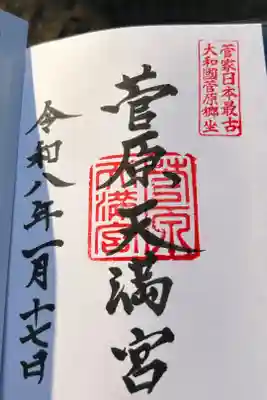 菅家日本最古
大和國菅原郷坐
菅原天満宮
菅原天満宮
令和八年一月十七日